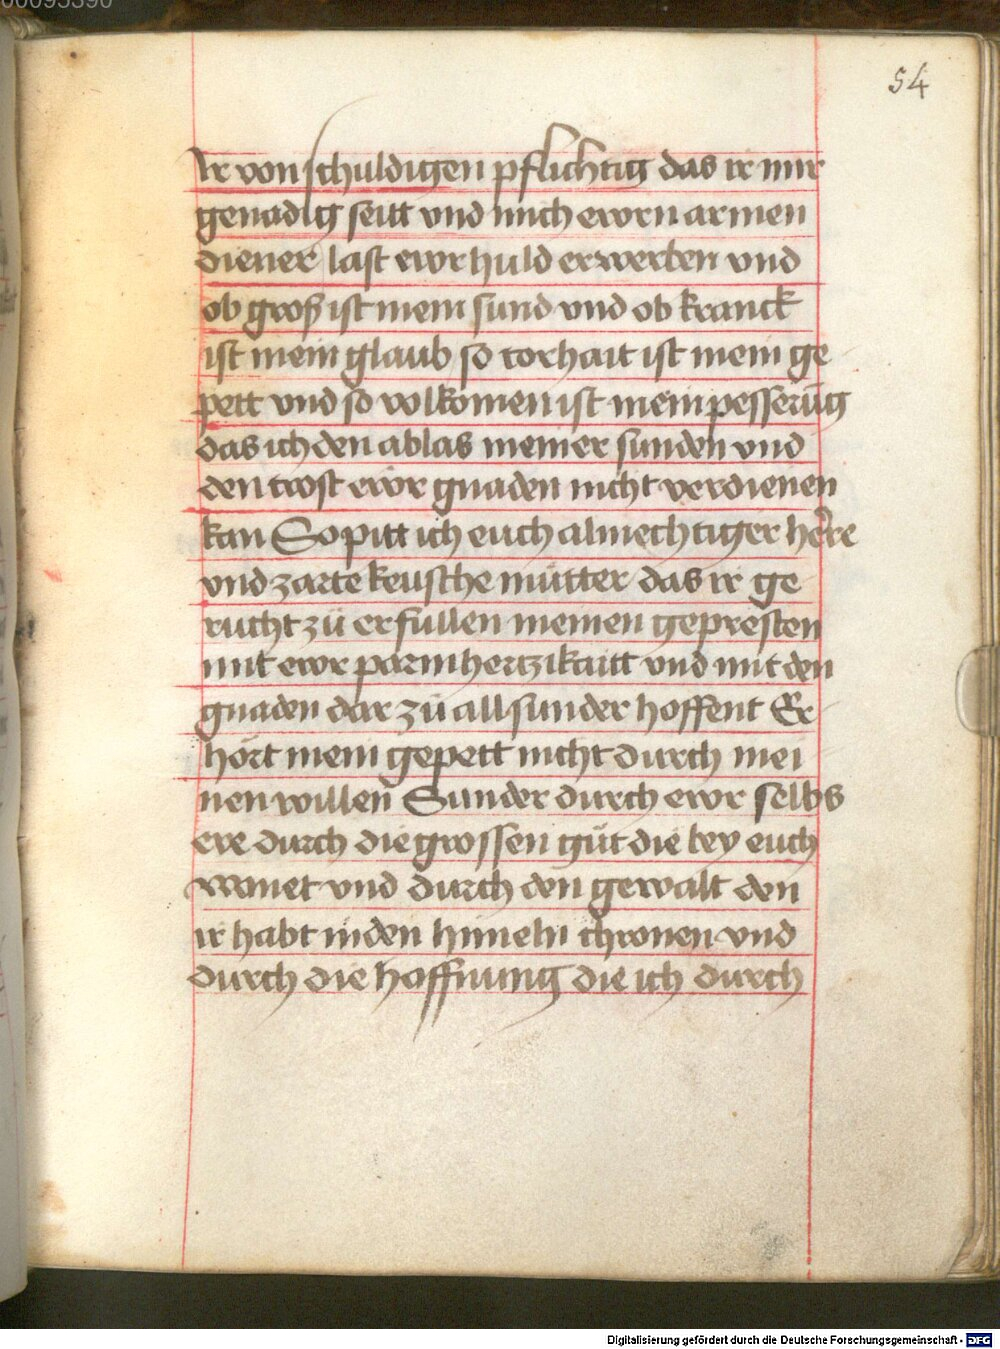 00095390
54
Ir von schuldigen pflichtig das ir mir
genadig seitt vnd mich ewrn armen
diener last ewr huld erwerben vnd
ob groß ist mein sund vnd ob kranck
ist mein glaub so torhait ist mein ge
pett vnd so volkomen ist mein pesserūg
das ich den ablas meiner sunden vnd
den trost ewr gnaden nicht verdienen
kan So pitt ich euch almechtiger here
vnd zarte keusche mutter das ir ge
rucht zů erfullen meinen gepresten
mit ewr parmhertzikaitt vnd mit den
gnaden dar zů all sunder hoffent Er
hört mein gepett nicht durch mei
nen willen Sunder durch ewr selbs
ere durch die grossen gůt die bey euch
wonet vnd durch den gewalt den
ir habt in den himeln thronen vnd
durch die hoffnung die ich durch
Digitalisierung gefördert durch die Deutsche Forschungsgemeinschaft - DFG